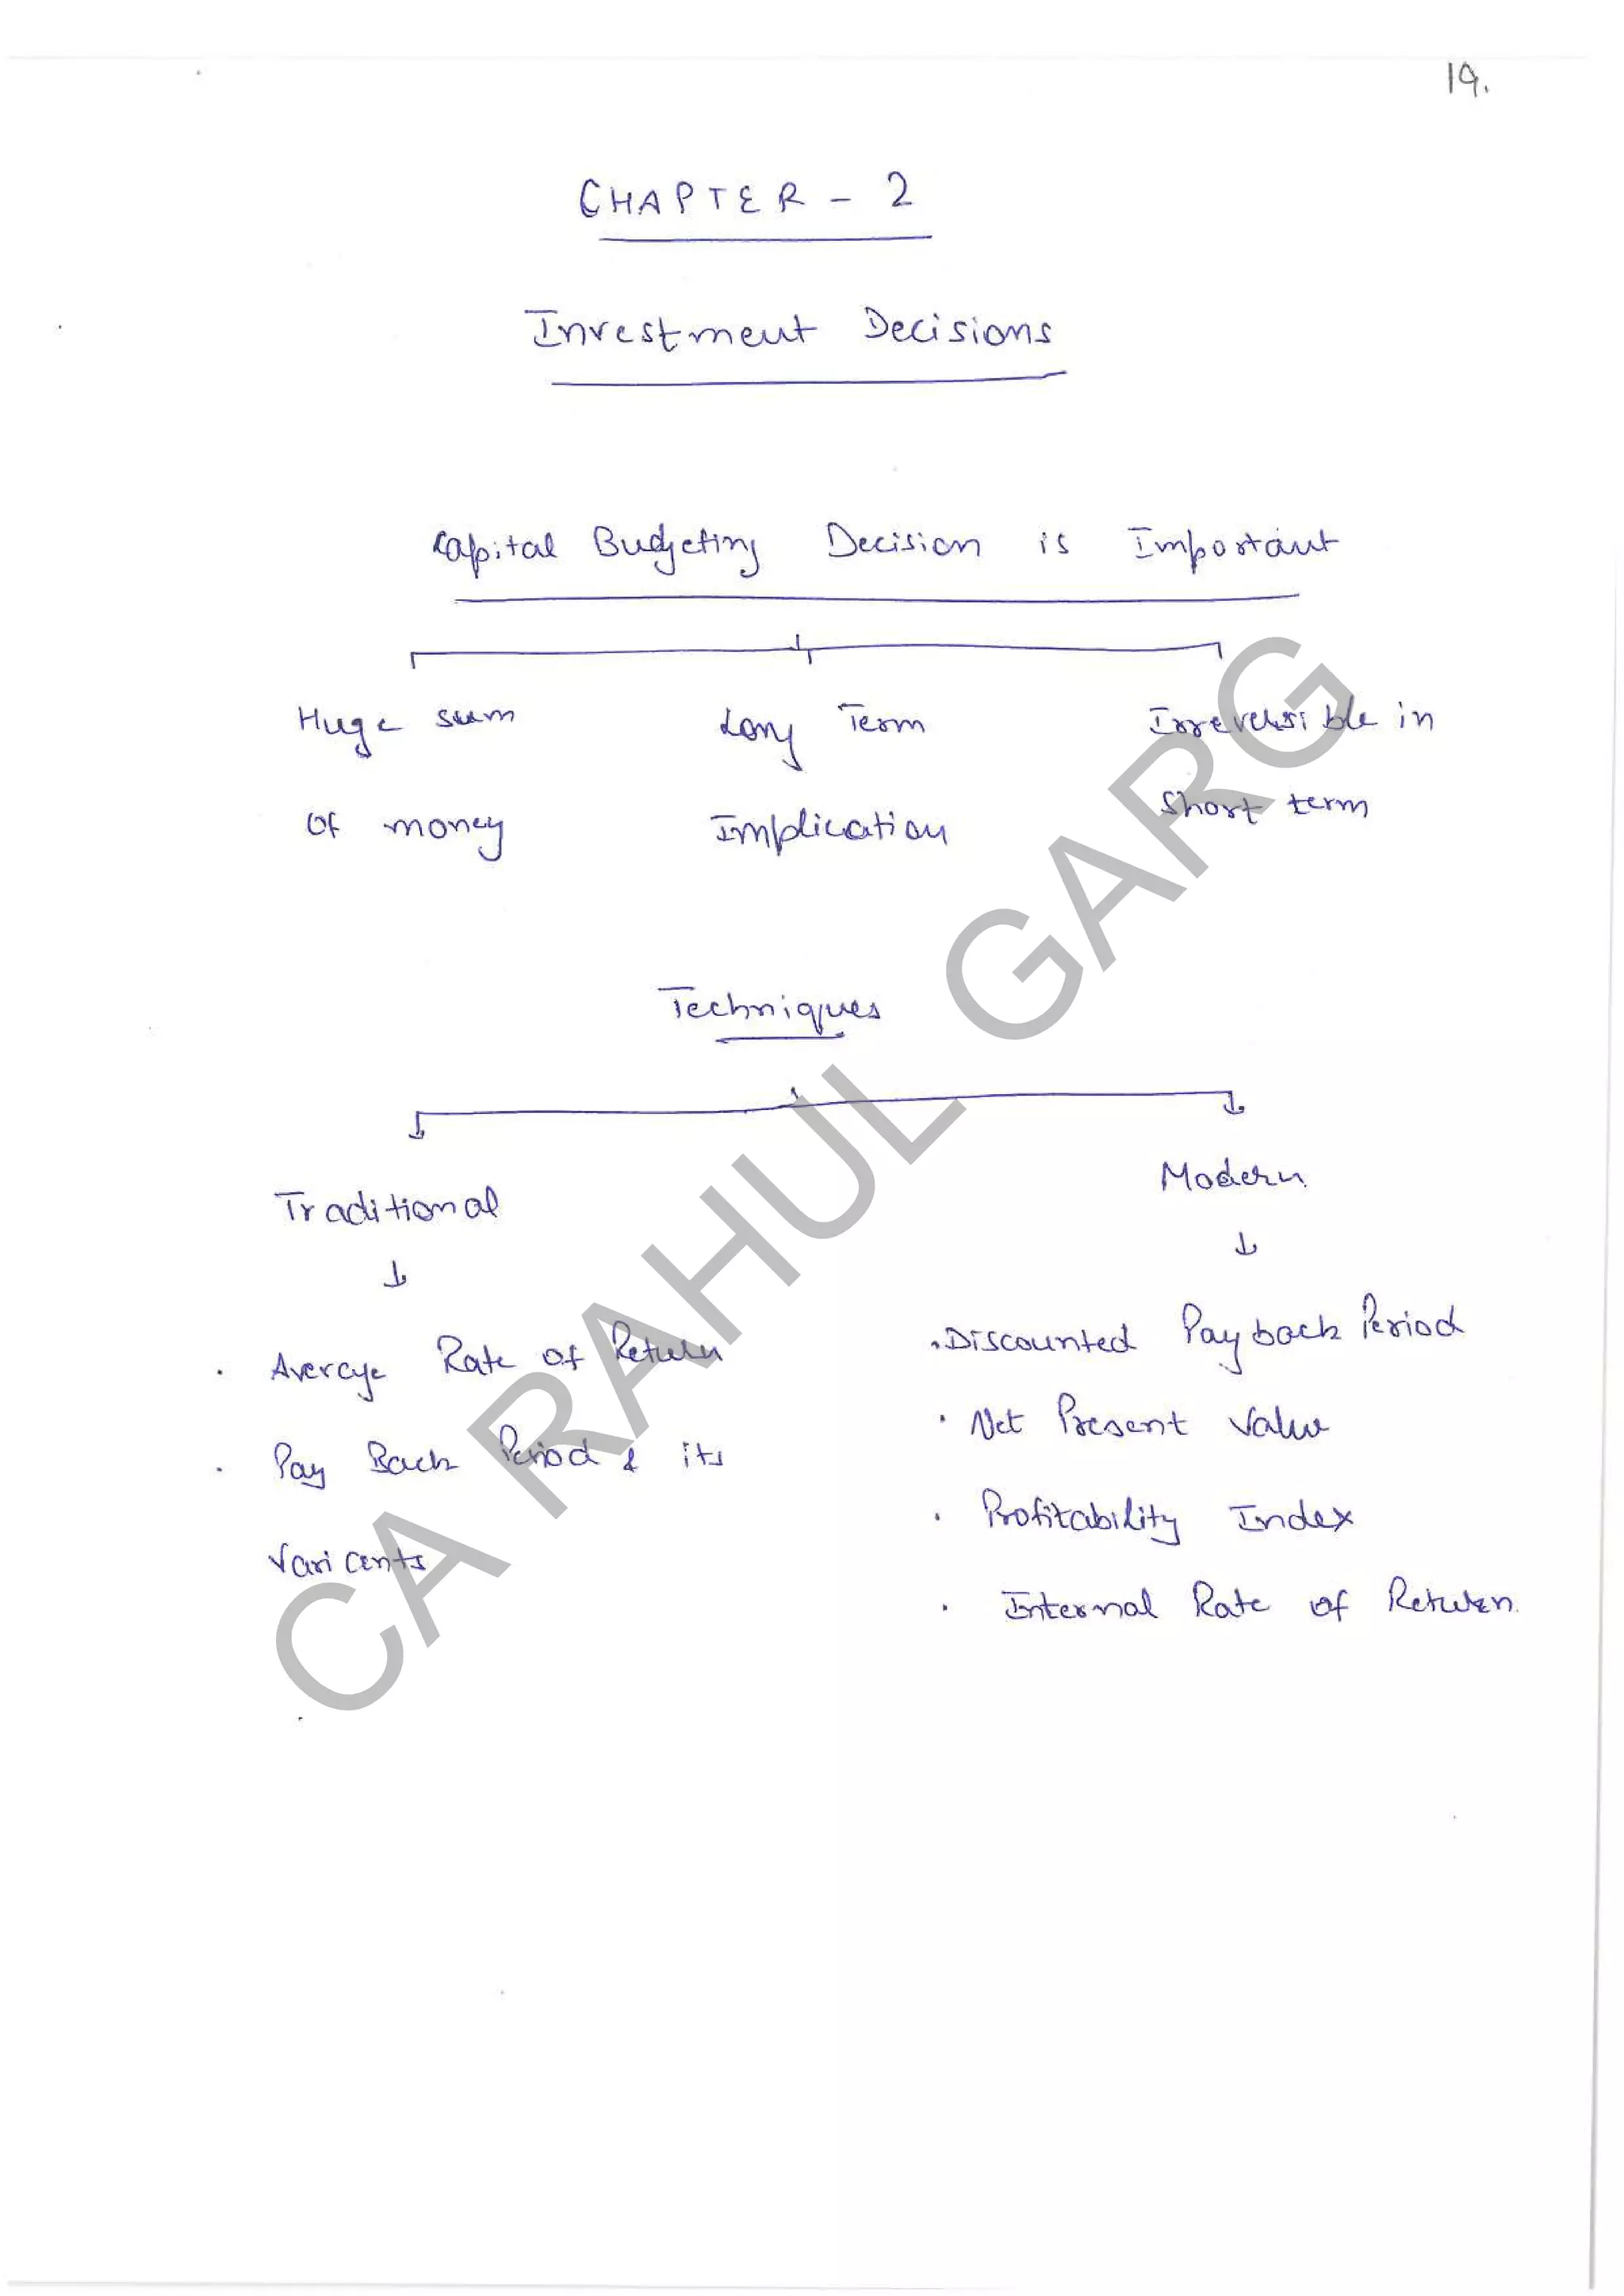 19.
CHAPTER - 2
Investment Decisions
Capital Budgeting Decision is Important
Huge sum Long Term Irreversible in
of money Implication Short term
Techniques
Traditional Modern
· Average Rate of Return · Discounted Payback Period
· Pay Back Period & its · Net Present Value
Variants · Profitability Index
· Internal Rate of Return.
CA RAHUL GARG